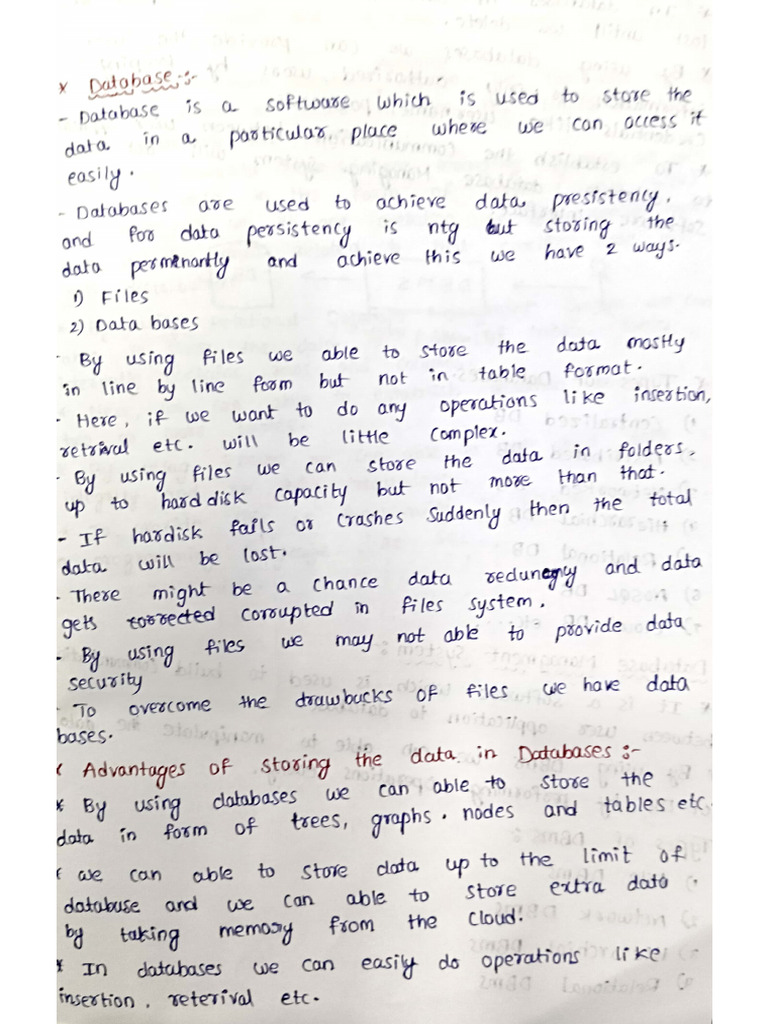 x Database :-
- Database is a software, which is used to store the
data in a particular place where we can access it
easily.
- Databases are used to achieve data presistency.
and for data persistency is ntg but storing the
data permenantly and achieve this we have 2 ways.
1) Files
2) Data bases
- By using files we able to store the data mostly
in line by line form but not in table format.
- Here, if we want to do any operations like insertion,
retrival etc. will be little complex.
- By using files we can store the data in folders.
up to hard disk capacity but not more than that.
- If hardisk fails or crashes suddenly then the total
data will be lost.
- There might be a chance data redundency and data
gets corrected corrupted in files system.
- By using files we may not able to provide data
security
- To overcome the drawbucks of files we have data
bases.
x Advantages of storing the data in Databases :-
* By using databases we can able to store the
data in form of trees, graphs. nodes and tables etc.
* we can able to store data up to the limit of
databuse and we can able to store extra data.
by taking memory from the cloud.
* In databases we can easily do operations like
insertion, reterival etc.